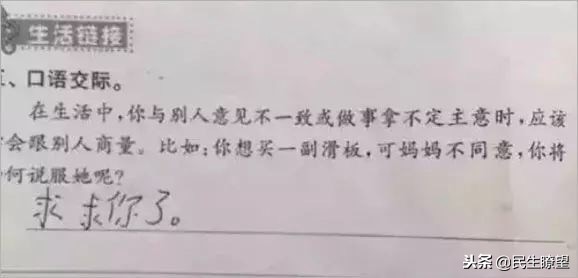 生活链接
、口语交际。
在生活中,你与别人意见不一致或做事拿不定主意时,应该
会跟别人商量。比如:你想买一副滑板,可妈妈不同意,你将
何说服她呢?
求求你了。
头条@民生瞭望